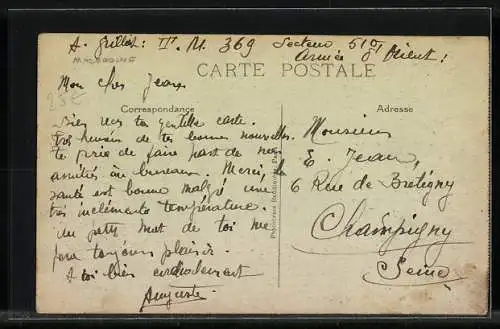 A. Grillot: IIt. M. 369 Secteur 510
Armée d'Orient:
MACEDOINE
CARTE POSTALE
Mon cher Jean,
25E
Correspondance
Adresse
Bien reçu ta gentille carte.
Très heureux de tes bonnes nouvelles.
te prie de faire part de mes
amitiés au bureau. Merci, la
santé est bonne malgré une
très inclémente température.
Un petit mot de toi me
fera toujours plaisir.
A toi bien cordialement
Auguste
Monsieur
E. Jean,
6 Rue de Bretigny
Champigny
Seine